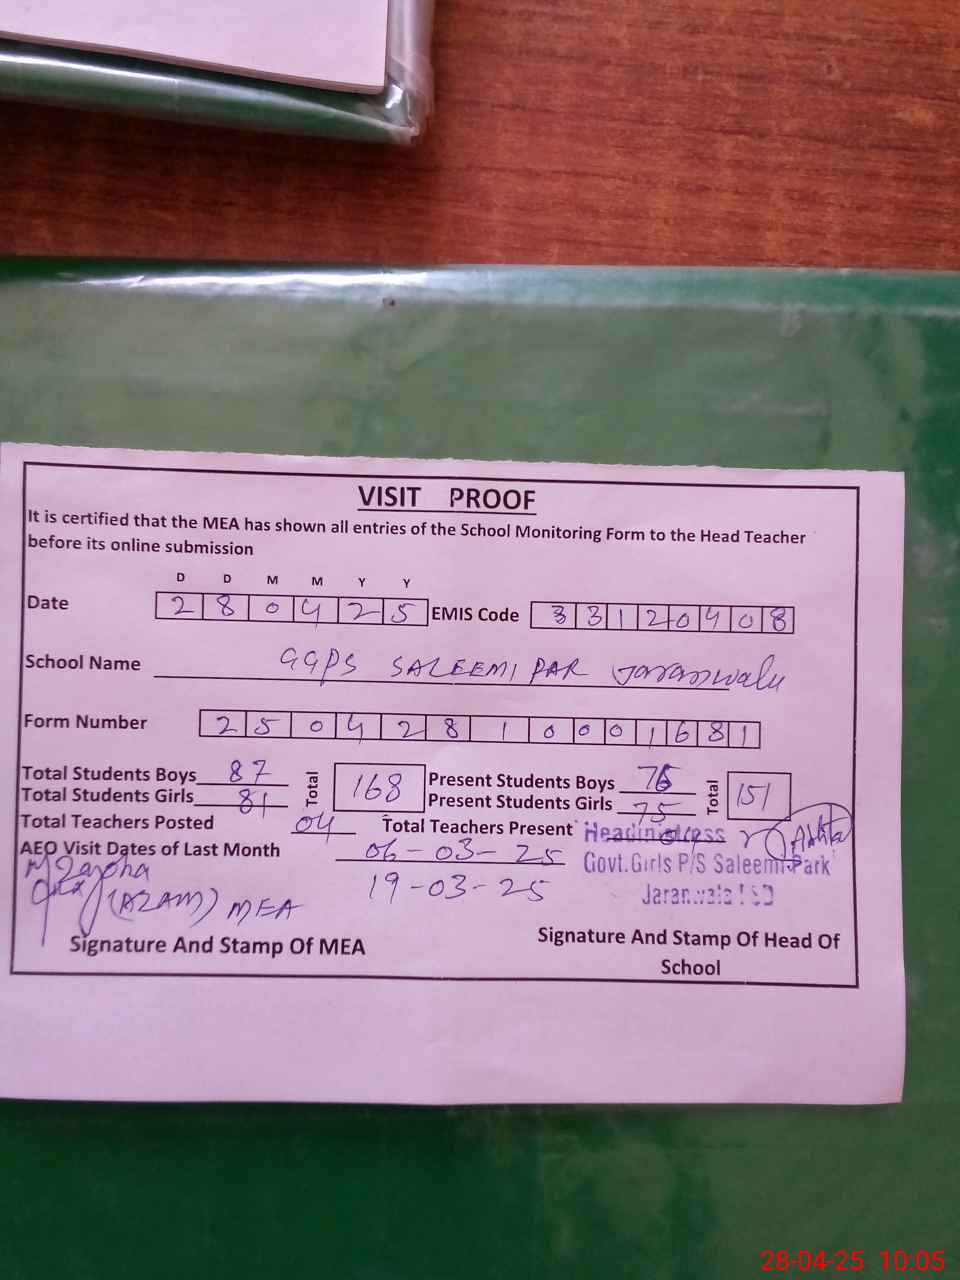 VISIT PROOF
It is certified that the MEA has shown all entries of the School Monitoring Form to the Head Teacher
before its online submission
D D M M Y Y
Date 2 8 0 4 2 5 EMIS Code 3 3 1 2 0 4 0 8
School Name GGPS SALEEMI PAR Jaranwala
Form Number 2 5 0 4 2 8 1 0 0 0 1 6 8 1
Total Students Boys 87 Total 168 Present Students Boys 76 Total 151
Total Students Girls 81 Present Students Girls 75
Total Teachers Posted 04 Total Teachers Present 04
Headmistress
AEO Visit Dates of Last Month 06-03-25
Govt.Girls P/S Saleemi Park
19-03-25
Jaranwala
(AZAM) MEA
Signature And Stamp Of MEA
Signature And Stamp Of Head Of
School
28-04-25 10:05